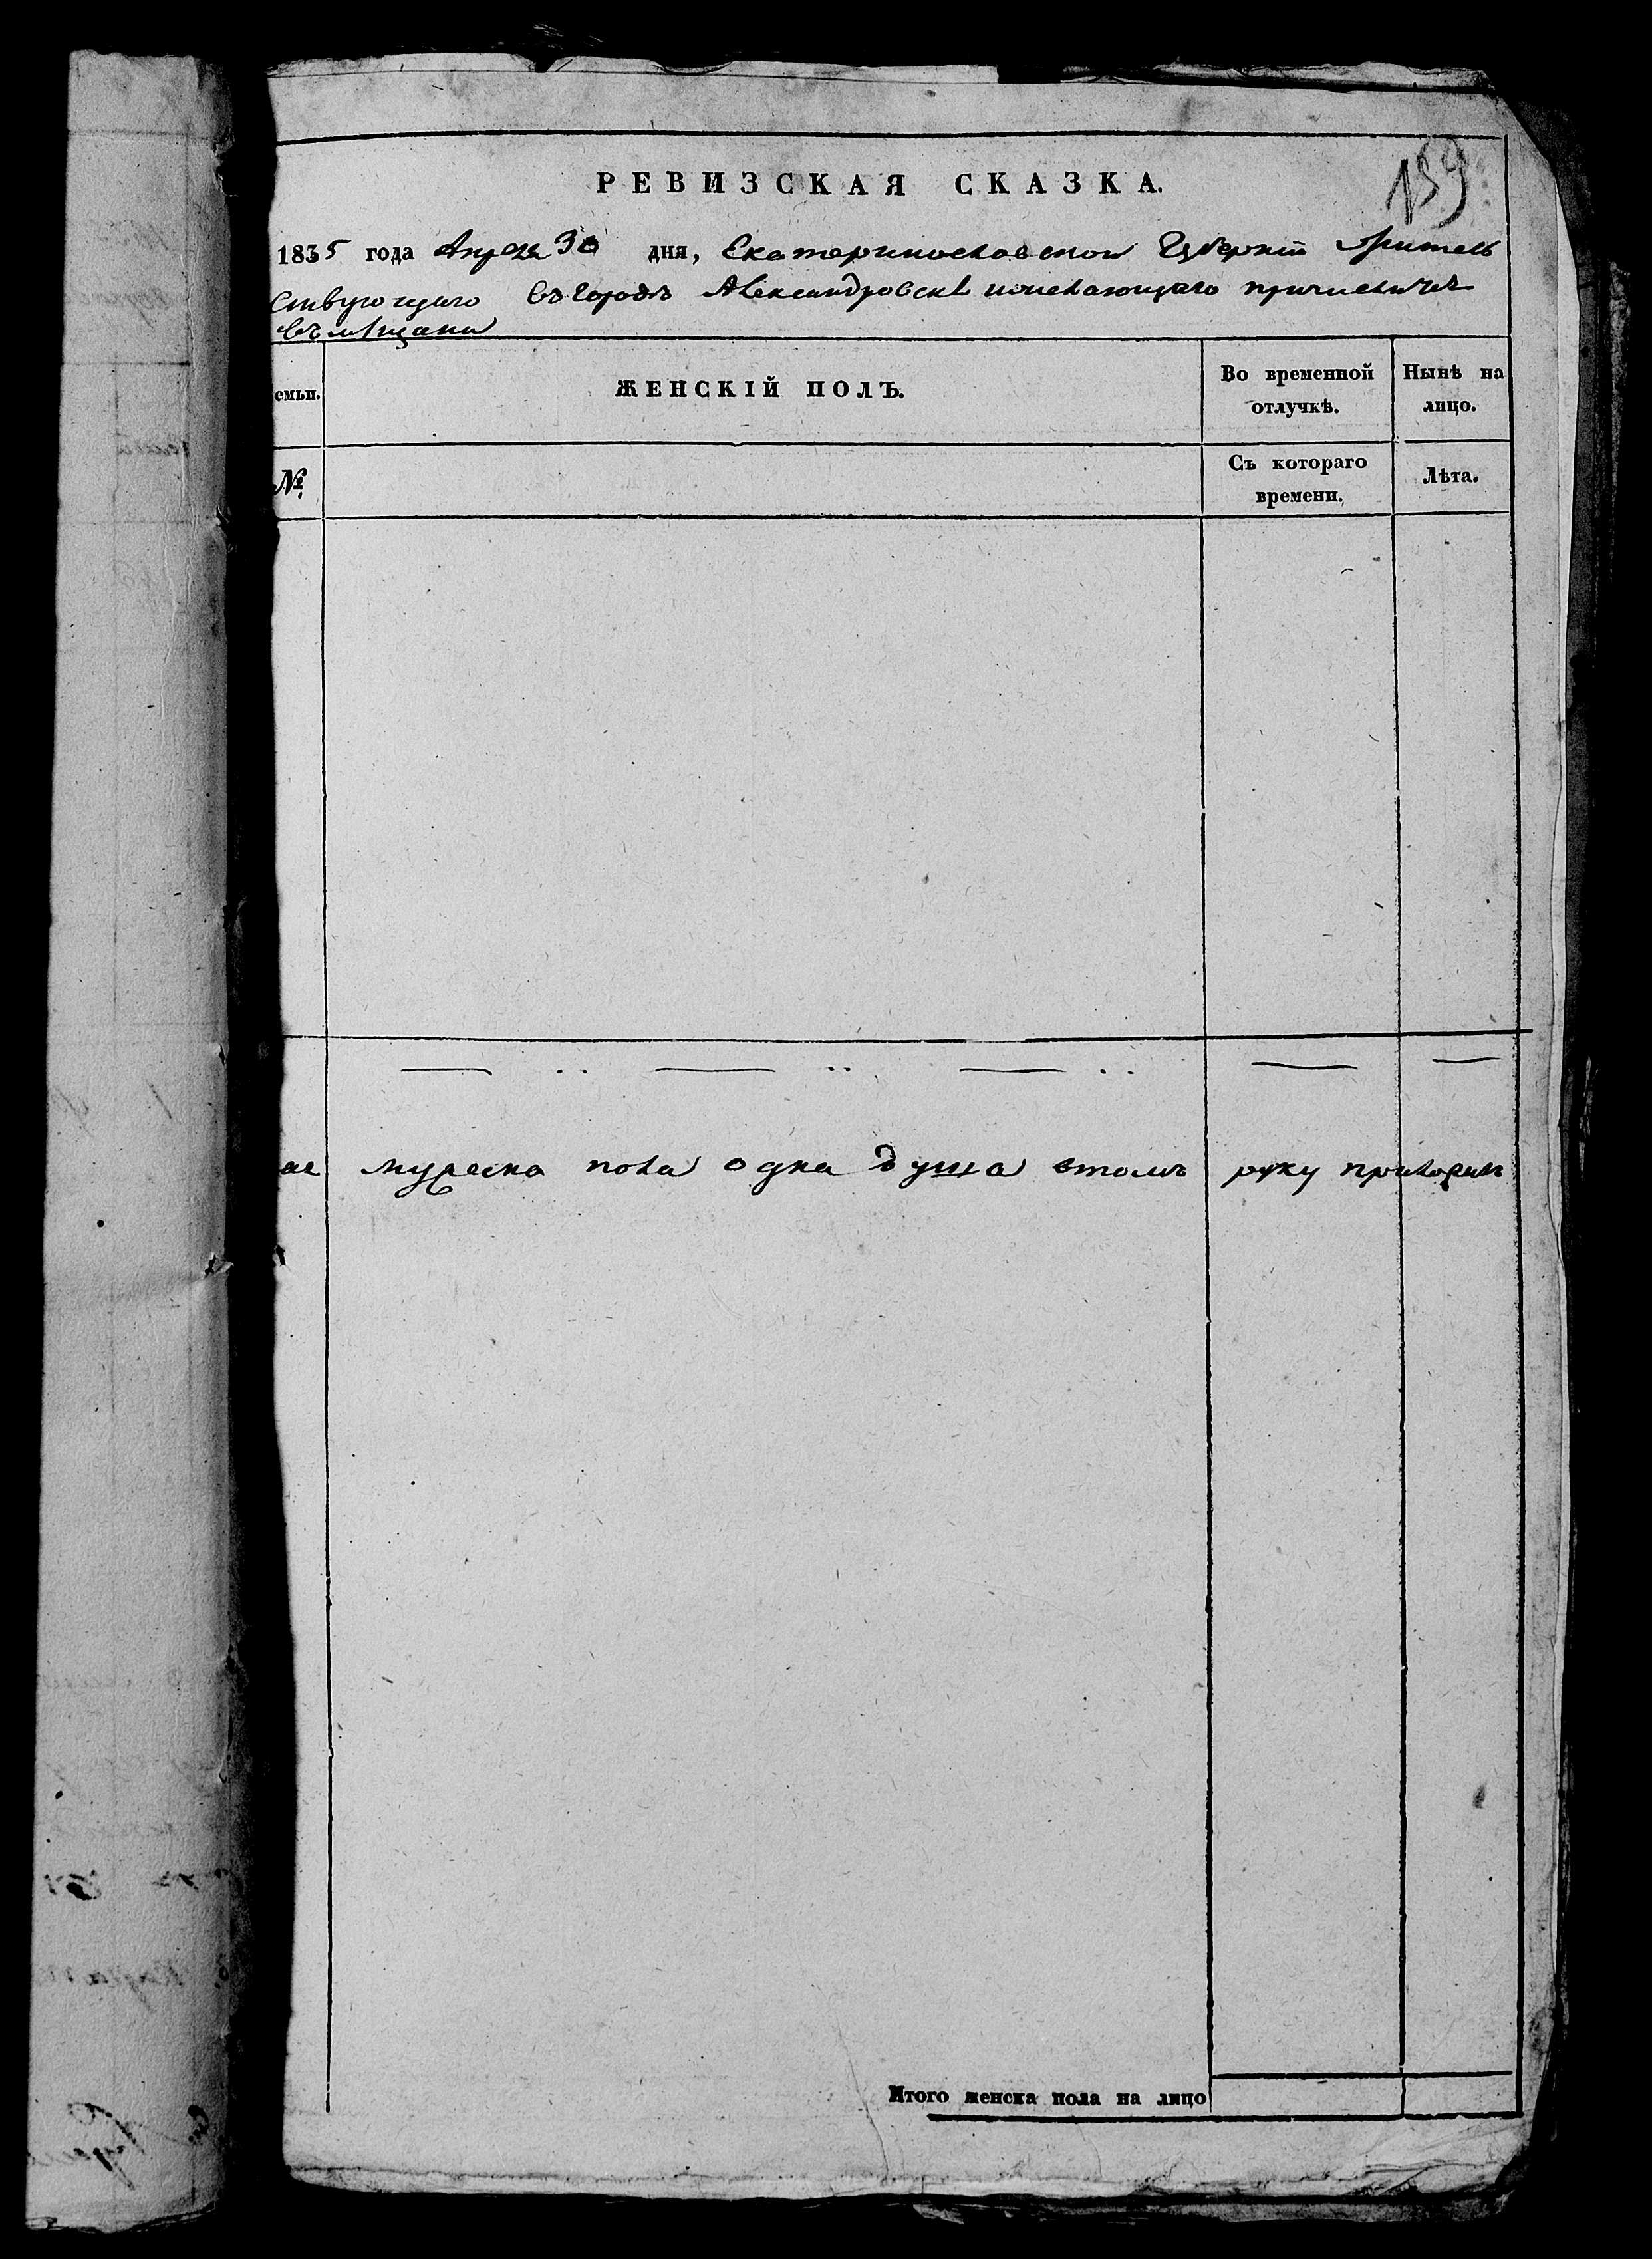 159
РЕВИЗСКАЯ СКАЗКА.
1835 года Апреля 30 дня, Екатеринославской Губерніи жител
ствующаго въ городѣ Александровскѣ причислится
въ мѣщани
емьи.
ЖЕНСКІЙ ПОЛЪ.
Во временной отлучкѣ.
Нынѣ на лицо.
№
Съ котораго времени.
Лѣта.
ае мужеска пола одна душа втомъ руку приложил
Итого женска пола на лицо